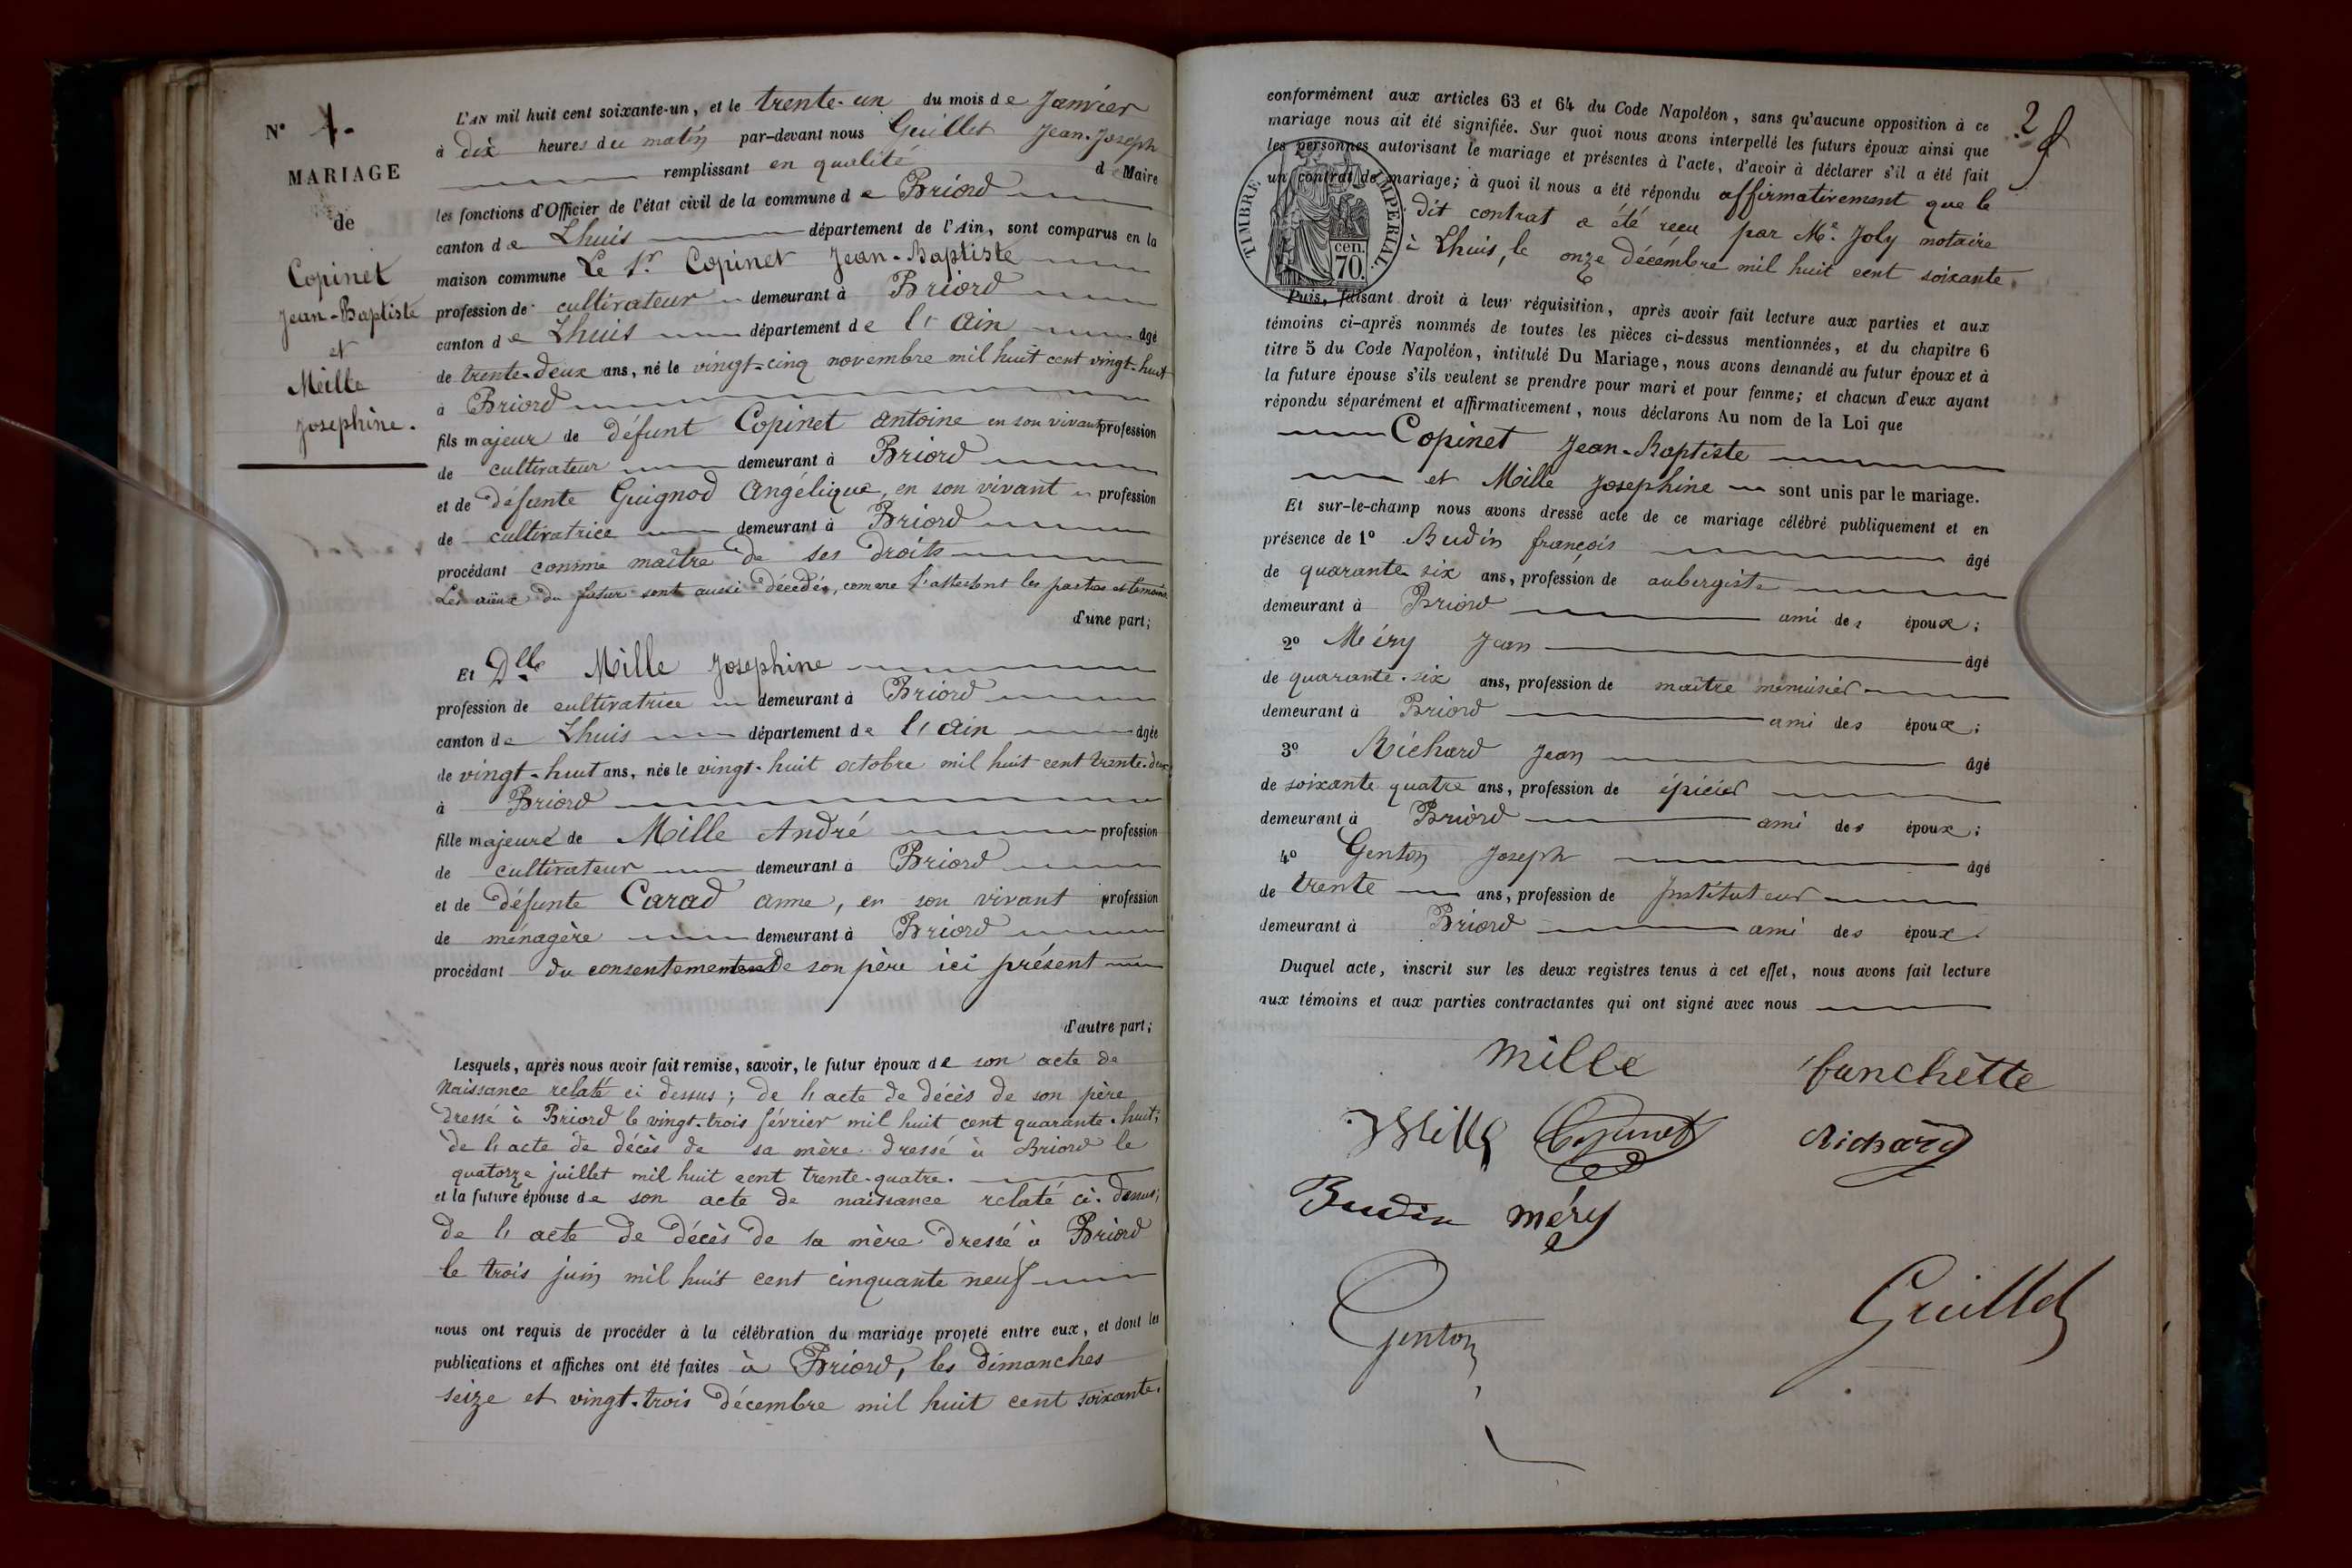 N° 1.
MARIAGE
de
Copinet
Jean-Baptiste
et
Mille
Josephine.
L'AN mil huit cent soixante-un, et le trente-un du mois de Janvier
à dix heures du matin par-devant nous Guillet Jean-Joseph
remplissant en qualité de Maire
les fonctions d'Officier de l'état civil de la commune de Briord
canton de Lhuis département de l'Ain, sont comparus en la
maison commune Le Sr Copinet Jean-Baptiste
profession de cultivateur demeurant à Briord
canton de Lhuis département de l'Ain âgé
de trente-deux ans, né le vingt-cinq novembre mil huit cent vingt-huit
à Briord
fils majeur de défunt Copinet Antoine en son vivant profession
de cultivateur demeurant à Briord
et de défunte Guignod Angélique, en son vivant profession
de cultivatrice demeurant à Briord
procédant comme maître de ses droits
Les aïeux du futur sont aussi décédés, comme l'attestent les parties et témoins
d'une part;
Et Dlle Mille Josephine
profession de cultivatrice demeurant à Briord
canton de Lhuis département de l'Ain âgée
de vingt-huit ans, née le vingt-huit octobre mil huit cent trente-deux
à Briord
fille majeure de Mille André profession
de cultivateur demeurant à Briord
et de défunte Carad Anne, en son vivant profession
de ménagère demeurant à Briord
procédant du consentement de son père ici présent
d'autre part;
Lesquels, après nous avoir fait remise, savoir, le futur époux de son acte de
Naissance relaté ci dessus; de l'acte de décès de son père
dressé à Briord le vingt-trois février mil huit cent quarante-huit;
de l'acte de décès de sa mère dressé à Briord le
quatorze juillet mil huit cent trente-quatre.
et la future épouse de son acte de naissance relaté ci-dessus;
de l'acte de décès de sa mère dressé à Briord
le trois juin mil huit cent cinquante neuf
nous ont requis de procéder à la célébration du mariage projeté entre eux, et dont les
publications et affiches ont été faites à Briord, les dimanches
seize et vingt-trois décembre mil huit cent soixante.
2
conformément aux articles 63 et 64 du Code Napoléon, sans qu'aucune opposition à ce
mariage nous ait été signifiée. Sur quoi nous avons interpellé les futurs époux ainsi que
les personnes autorisant le mariage et présentes à l'acte, d'avoir à déclarer s'il a été fait
un contrat de mariage; à quoi il nous a été répondu affirmativement que le
dit contrat a été reçu par Me. Joly notaire
à Lhuis, le onze décembre mil huit cent soixante.
TIMBRE IMPERIAL.
cen.
70.
Puis, faisant droit à leur réquisition, après avoir fait lecture aux parties et aux
témoins ci-après nommés de toutes les pièces ci-dessus mentionnées, et du chapitre 6
titre 5 du Code Napoléon, intitulé Du Mariage, nous avons demandé au futur époux et à
la future épouse s'ils veulent se prendre pour mari et pour femme; et chacun d'eux ayant
répondu séparément et affirmativement, nous déclarons Au nom de la Loi que
Copinet Jean-Baptiste
et Mille Josephine sont unis par le mariage.
Et sur-le-champ nous avons dressé acte de ce mariage célébré publiquement et en
présence de 1° Budin françois âgé
de quarante six ans, profession de aubergiste
demeurant à Briord ami des époux;
2° Méry Jean âgé
de quarante-six ans, profession de maître menuisier
demeurant à Briord ami des époux;
3° Richard Jean âgé
de soixante quatre ans, profession de épicier
demeurant à Briord ami des époux;
4° Genton Joseph âgé
de trente ans, profession de Instituteur
demeurant à Briord ami des époux.
Duquel acte, inscrit sur les deux registres tenus à cet effet, nous avons fait lecture
aux témoins et aux parties contractantes qui ont signé avec nous
mille fanchette
Mille Copinet Richard
Budin méry
Genton Guillet